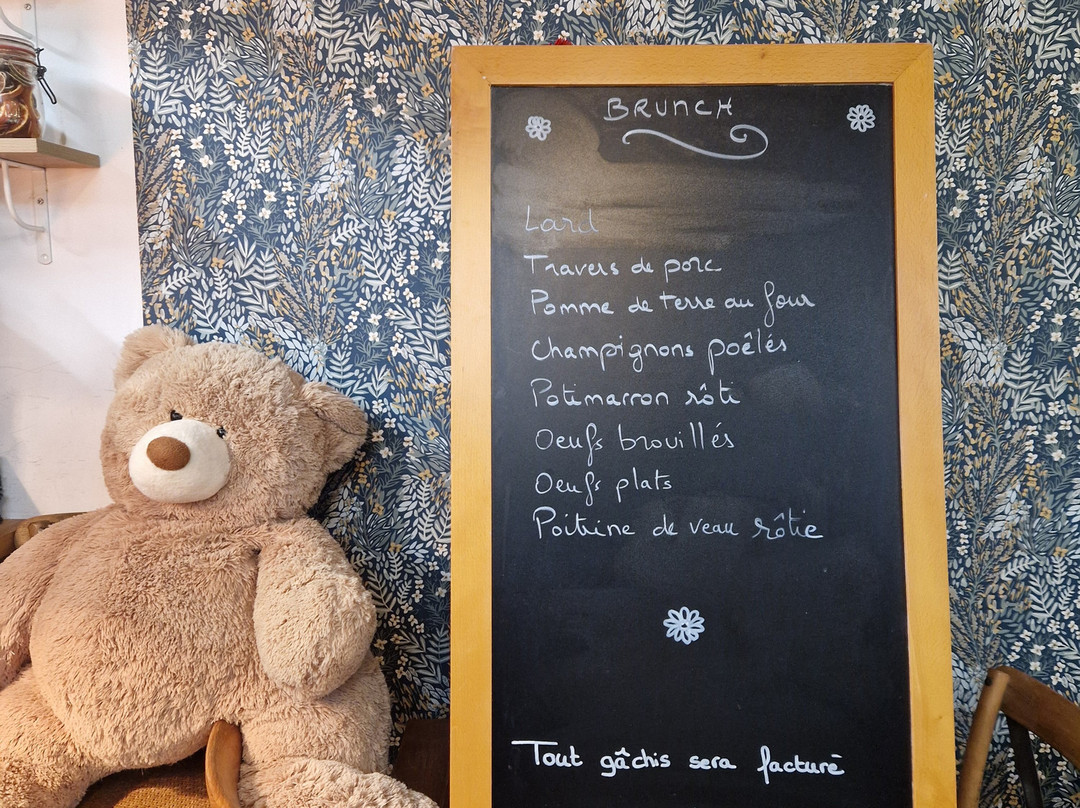 BRUNCH
Lard
Travers de porc
Pomme de terre au four
Champignons poêlés
Potimarron rôti
Oeufs brouillés
Oeufs plats
Poitrine de veau rôtie
Tout gâchis sera facturé